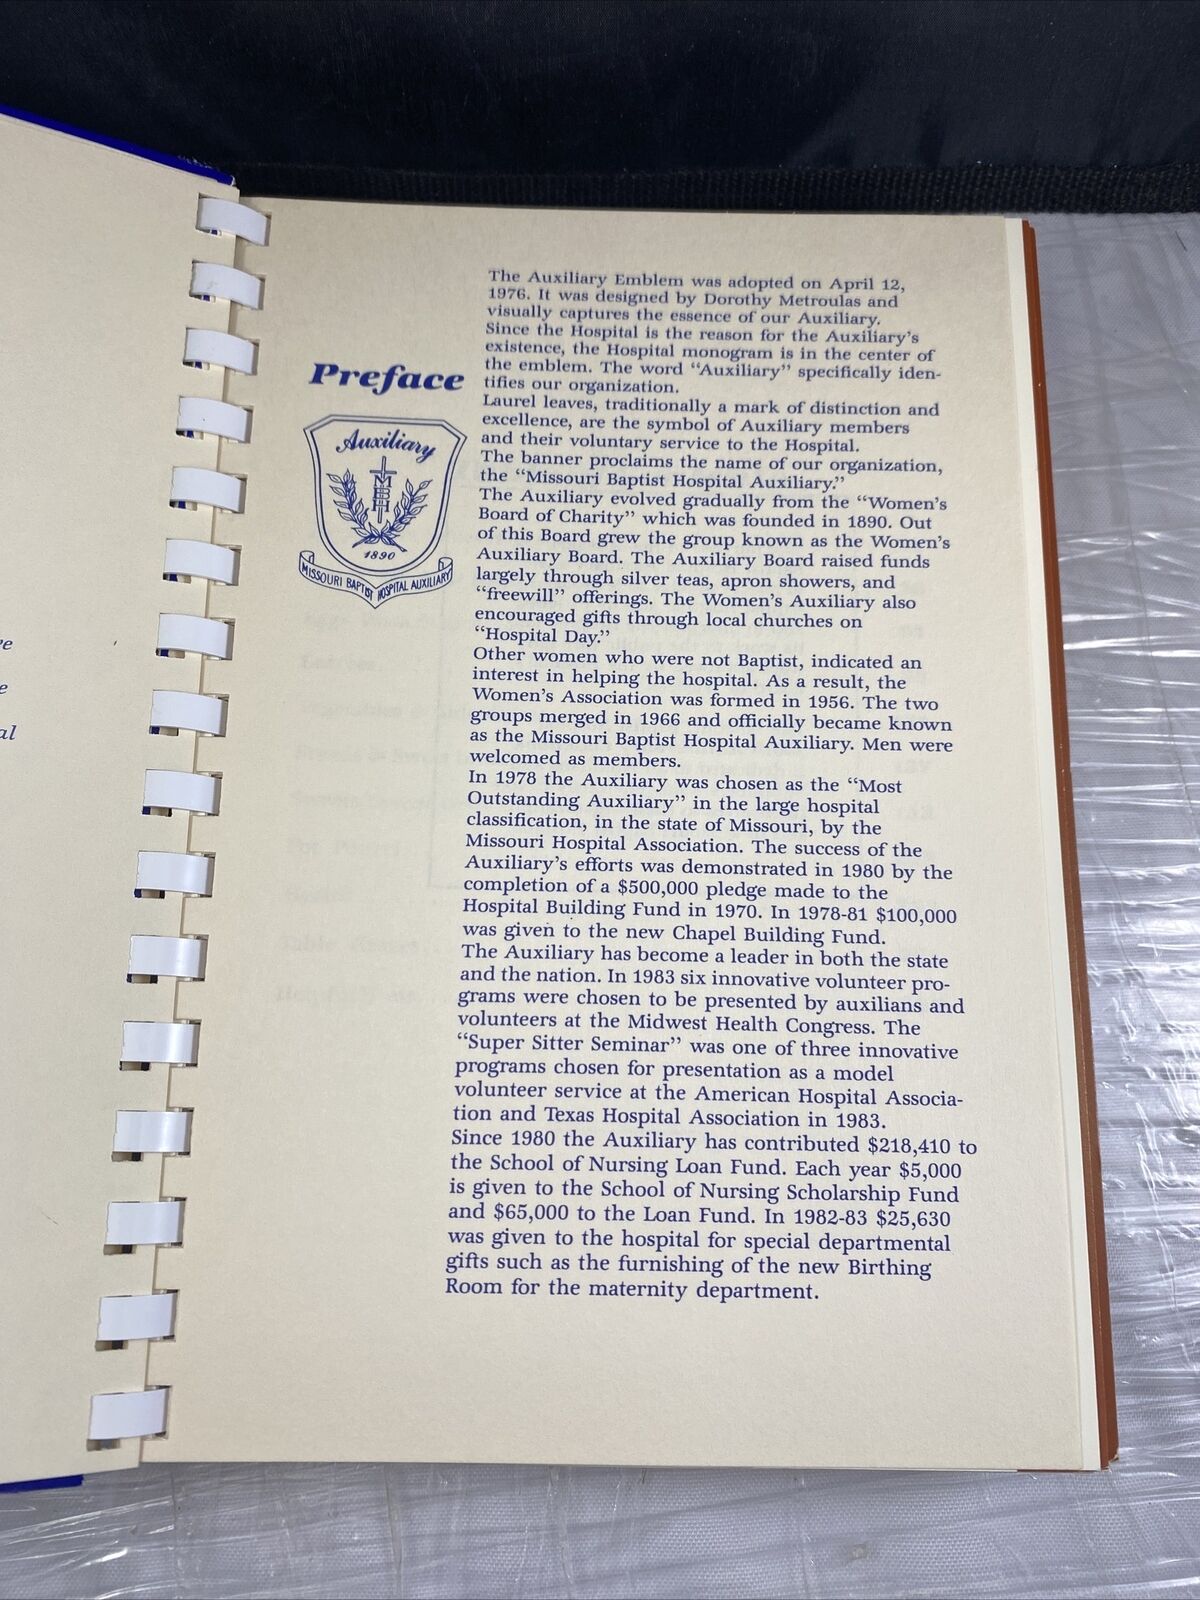 Preface
Auxiliary
MBH
1890
MISSOURI BAPTIST HOSPITAL AUXILIARY
The Auxiliary Emblem was adopted on April 12,
1976. It was designed by Dorothy Metroulas and
visually captures the essence of our Auxiliary.
Since the Hospital is the reason for the Auxiliary's
existence, the Hospital monogram is in the center of
the emblem. The word "Auxiliary" specifically iden-
tifies our organization.
Laurel leaves, traditionally a mark of distinction and
excellence, are the symbol of Auxiliary members
and their voluntary service to the Hospital.
The banner proclaims the name of our organization,
the "Missouri Baptist Hospital Auxiliary."
The Auxiliary evolved gradually from the "Women's
Board of Charity" which was founded in 1890. Out
of this Board grew the group known as the Women's
Auxiliary Board. The Auxiliary Board raised funds
largely through silver teas, apron showers, and
"freewill" offerings. The Women's Auxiliary also
encouraged gifts through local churches on
"Hospital Day."
Other women who were not Baptist, indicated an
interest in helping the hospital. As a result, the
Women's Association was formed in 1956. The two
groups merged in 1966 and officially became known
as the Missouri Baptist Hospital Auxiliary. Men were
welcomed as members.
In 1978 the Auxiliary was chosen as the "Most
Outstanding Auxiliary" in the large hospital
classification, in the state of Missouri, by the
Missouri Hospital Association. The success of the
Auxiliary's efforts was demonstrated in 1980 by the
completion of a $500,000 pledge made to the
Hospital Building Fund in 1970. In 1978-81 $100,000
was given to the new Chapel Building Fund.
The Auxiliary has become a leader in both the state
and the nation. In 1983 six innovative volunteer pro-
grams were chosen to be presented by auxilians and
volunteers at the Midwest Health Congress. The
"Super Sitter Seminar" was one of three innovative
programs chosen for presentation as a model
volunteer service at the American Hospital Associa-
tion and Texas Hospital Association in 1983.
Since 1980 the Auxiliary has contributed $218,410 to
the School of Nursing Loan Fund. Each year $5,000
is given to the School of Nursing Scholarship Fund
and $65,000 to the Loan Fund. In 1982-83 $25,630
was given to the hospital for special departmental
gifts such as the furnishing of the new Birthing
Room for the maternity department.